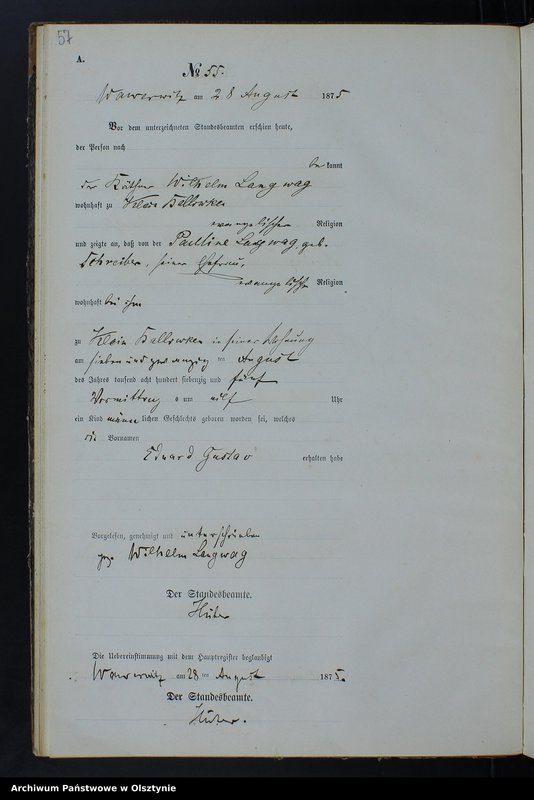 57
A.
№ 55.
Wawerwitz am 28 August 1875
Vor dem unterzeichneten Standesbeamten erschien heute,
der Person nach
bekannt
der Käthner Wilhelm Langwag
wohnhaft zu Klein
evangelischer Religion
und zeigte an, daß von der Pauline Langwag, geb.
Schreiber, seiner Ehefrau,
evangelischer Religion
wohnhaft bei ihm
zu Klein in seiner Wohnung
am sieben und zwanzig ten August
des Jahres tausend acht hundert siebenzig und fünf
Vormittag s um elf Uhr
ein Kind männlichen Geschlechts geboren worden sei, welches
die Vornamen
Eduard Gustav erhalten habe
Vorgelesen, genehmigt und unterschrieben
gez. Wilhelm Langwag
Der Standesbeamte.
Huter
Die Uebereinstimmung mit dem Hauptregister beglaubigt
Wawerwitz am 28 ten August 1875.
Der Standesbeamte.
Huter.
Archiwum Państwowe w Olsztynie